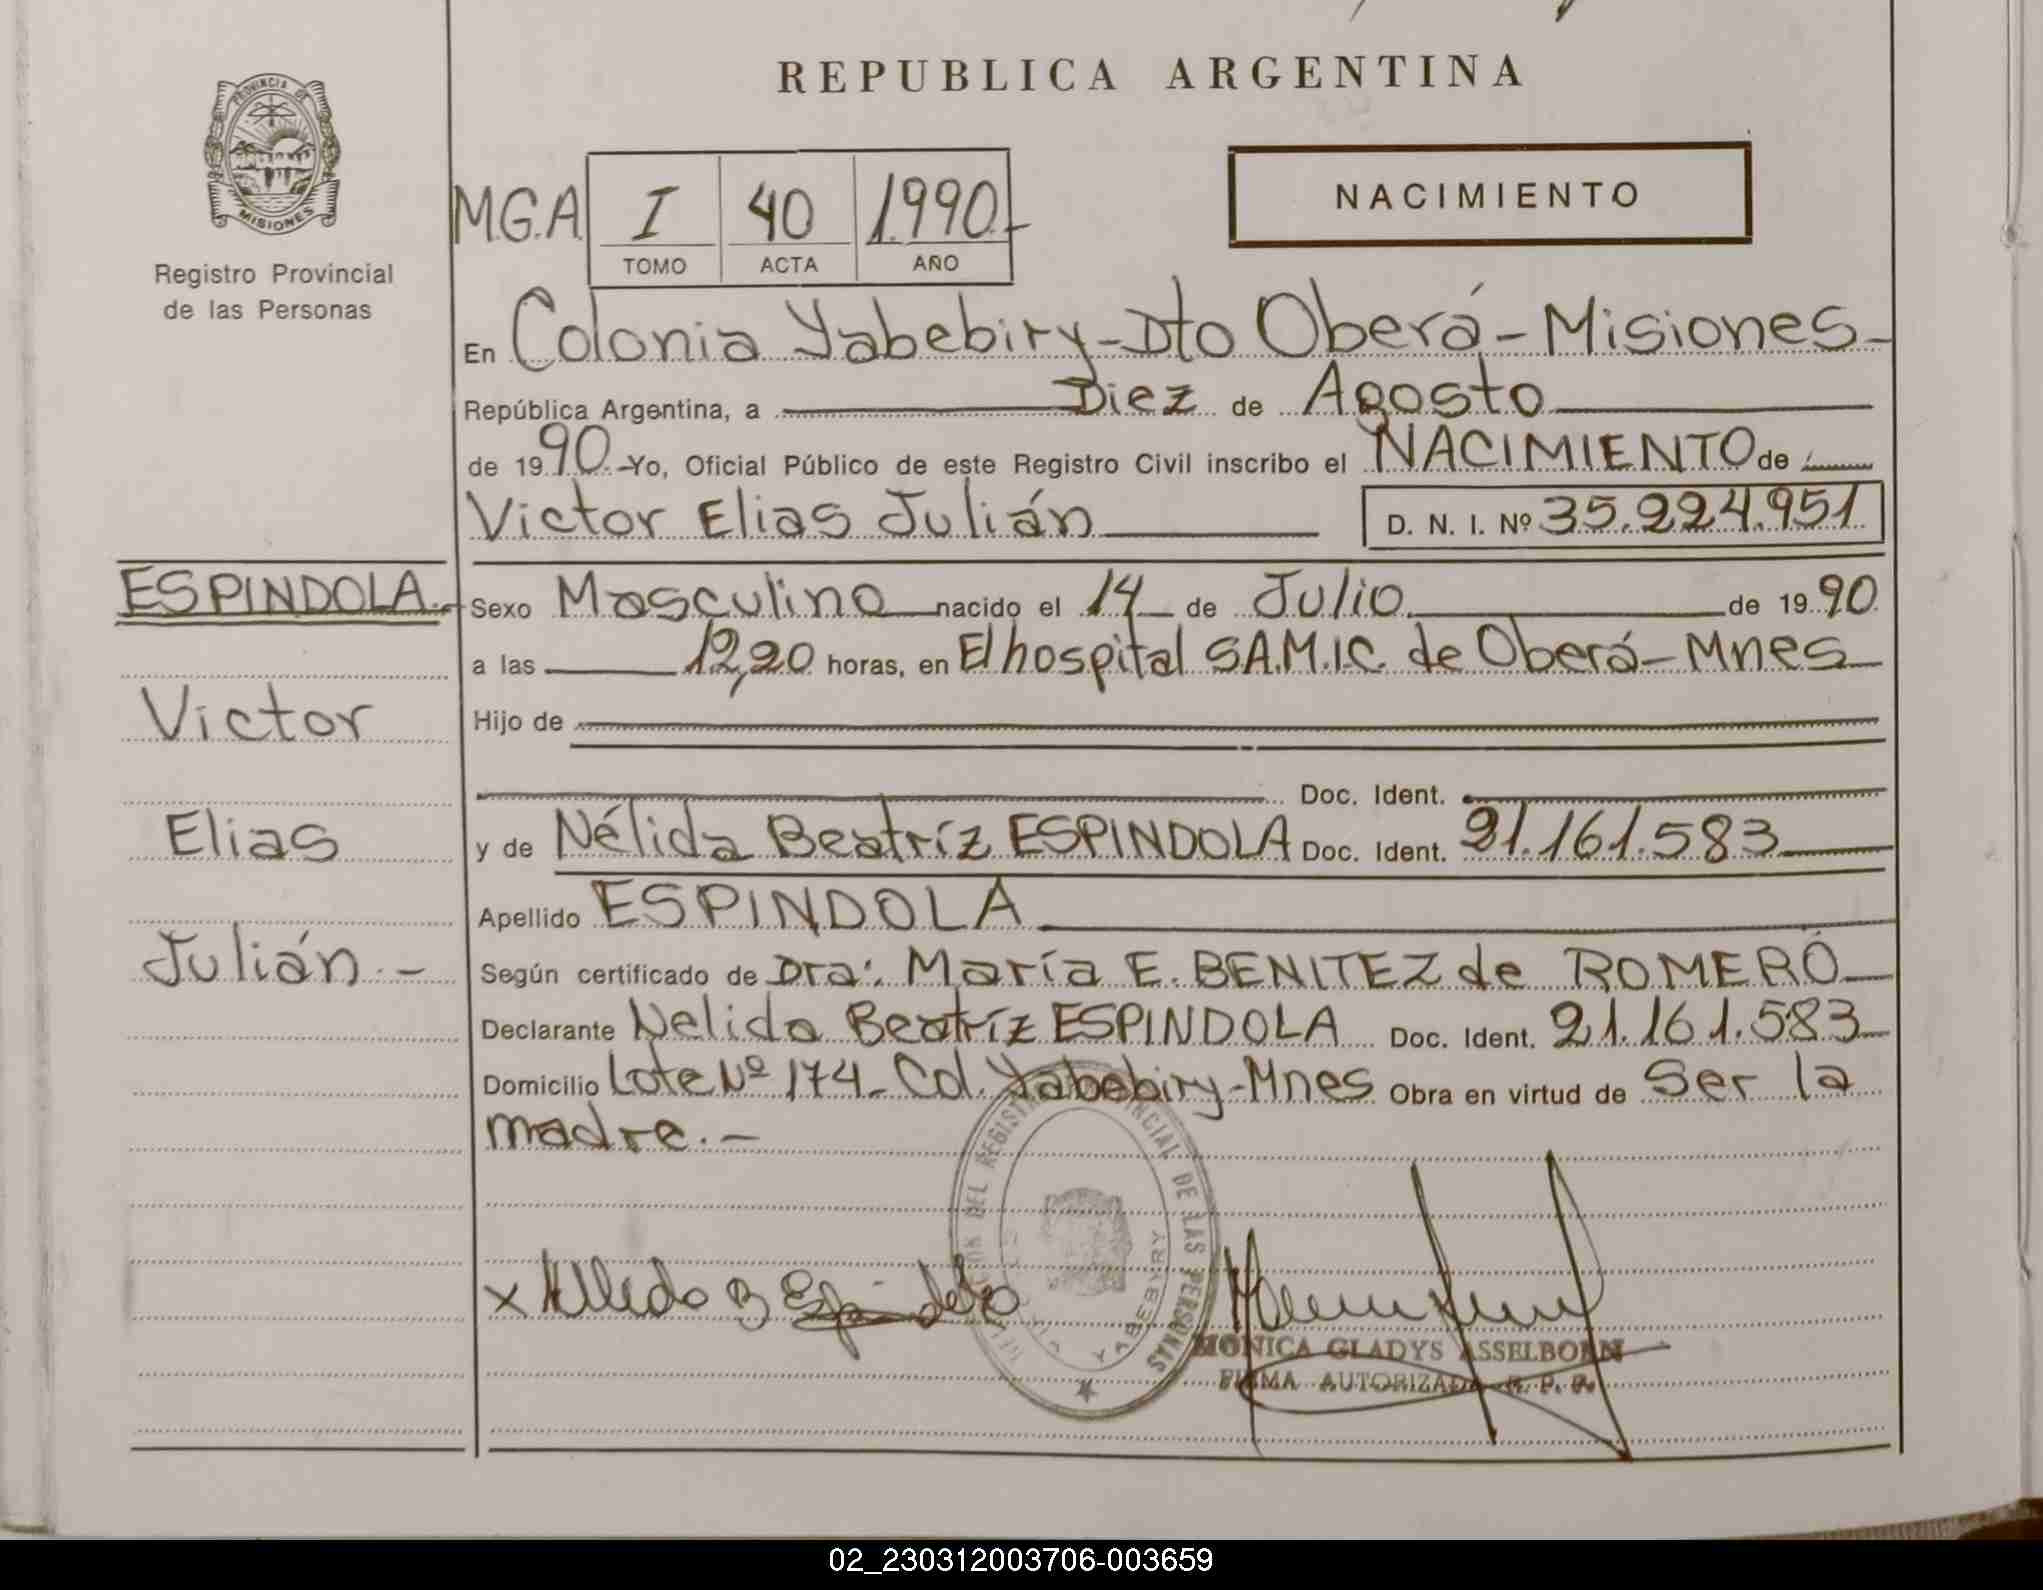 REPUBLICA ARGENTINA
PROVINCIA DE
MISIONES
Registro Provincial
de las Personas
M.G.A. I 40 1.990.-
TOMO ACTA AÑO
NACIMIENTO
En Colonia Yabebiry - Dto Oberá - Misiones -
República Argentina, a Diez de Agosto
de 19 90. - Yo, Oficial Público de este Registro Civil inscribo el NACIMIENTO de
Victor Elias Julián D. N. I. Nº 35.224.951
ESPINDOLA.-
Victor
Elias
Julián.-
Sexo Masculino nacido el 14 de Julio de 19 90.
a las 12,20 horas, en El hospital S.A.M.I.C. de Oberá - Mnes
Hijo de
Doc. Ident.
y de Nélida Beatríz ESPINDOLA Doc. Ident. 21.161.583
Apellido ESPINDOLA
Según certificado de Dra: María E. BENITEZ de ROMERO
Declarante Nelida Beatríz ESPINDOLA Doc. Ident. 21.161.583
Domicilio Lote Nº 174 - Col. Yabebiry - Mnes Obra en virtud de Ser la
madre.-
DEL REGISTRO PROVINCIAL DE LAS PERSONAS
YABEBYRY
x Nelida B Espindola
MONICA GLADYS ASSELBORN
FIRMA AUTORIZADA R. P. P.
02_230312003706-003659